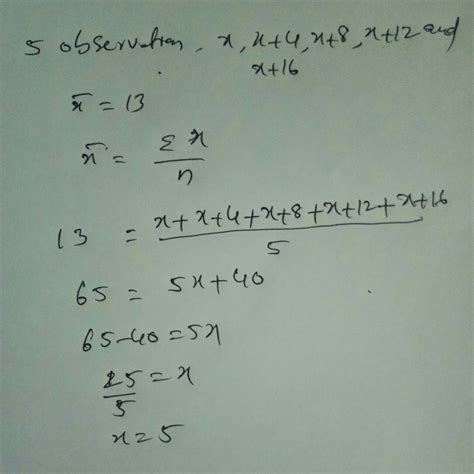 5 observation, x, x+4, x+8, x+12 and
x+16
x̄ = 13
x̄ = Σx/n
13 = x+x+4+x+8+x+12+x+16/5
65 = 5x+40
65-40=5x
25/5 = x
x=5